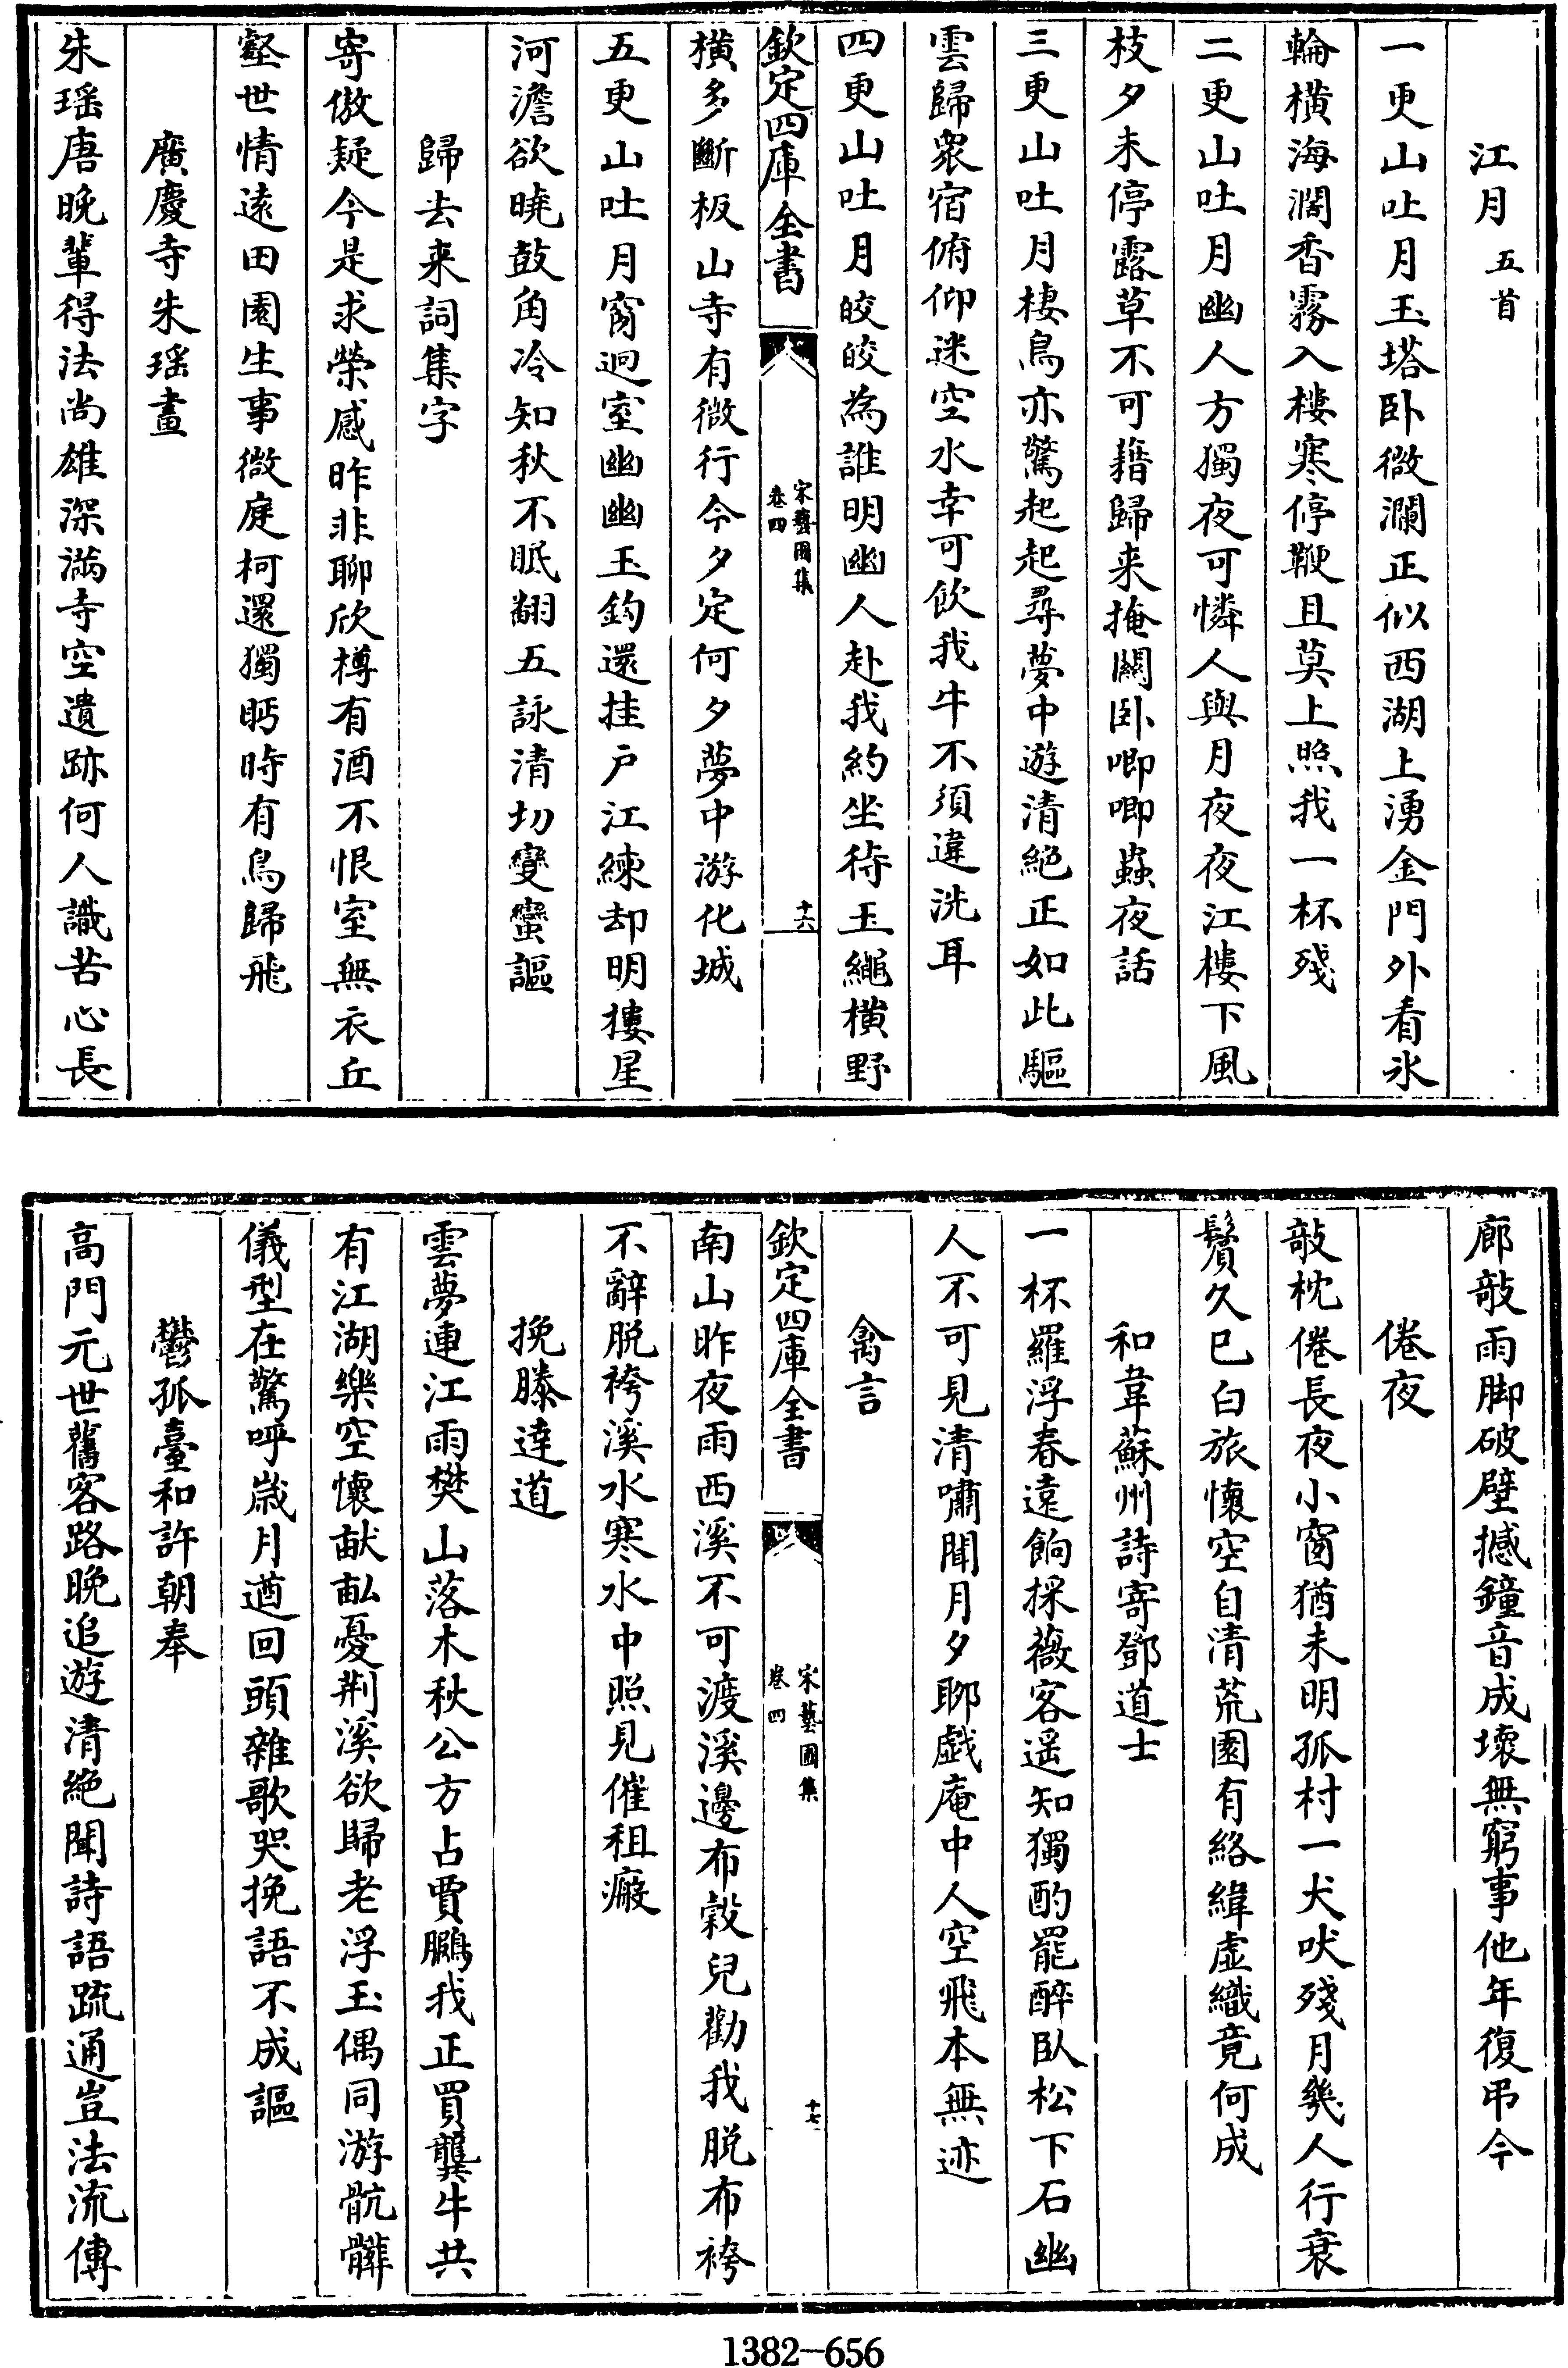 江月五首
一更山吐月玉塔卧微瀾正似西湖上湧金門外看氷
輪橫海濶香霧入樓寒停鞭且莫上照我一杯殘
二更山吐月幽人方獨夜可憐人與月夜夜江樓下風
枝夕未停露草不可藉歸来掩關卧唧唧蟲夜話
三更山吐月棲鳥亦驚起起尋夢中遊清絶正如此驅
雲歸衆宿俯仰迷空水幸可飲我牛不須違洗耳
四更山吐月皎皎為誰明幽人赴我約坐待玉繩橫野
欽定四庫全書
宋藝圃集
卷四
十六
橫多斷板山寺有微行今夕定何夕夢中游化城
五更山吐月窗迥室幽幽玉鈎還挂户江練却明摟星
河澹欲曉鼓角冷知秋不眠翻五詠清切變蠻謳
歸去来詞集字
寄傲疑今是求榮感昨非聊欣樽有酒不恨室無衣丘
壑世情逺田園生事微庭柯還獨眄時有鳥歸飛
廣慶寺朱瑶畫
朱瑶唐晚輩得法尚雄深滿寺空遺跡何人識苦心長
廊敧雨脚破壁撼鐘音成壞無窮事他年復弔今
倦夜
敧枕倦長夜小窗猶未明孤村一犬吠殘月幾人行衰
鬢久已白旅懷空自清荒園有絡緯虚織竟何成
和韋蘇州詩寄鄧道士
一杯羅浮春遠餉採薇客遥知獨酌罷醉臥松下石幽
人不可見清嘯聞月夕聊戯庵中人空飛本無迹
禽言
欽定四庫全書
宋藝圃集
卷四
十七
南山昨夜雨西溪不可渡溪邊布穀兒勸我脱布袴
不辭脱袴溪水寒水中照見催租瘢
挽滕達道
雲夢連江雨樊山落木秋公方占賈鵩我正買龔牛共
有江湖樂空懷畎畝憂荆溪欲歸老浮玉偶同游骯髒
儀型在驚呼歲月遒回頭雜歌哭挽語不成謳
鬱孤臺和許朝奉
高門元世舊客路晚追遊清絶聞詩語疏通豈法流傳
1382-656